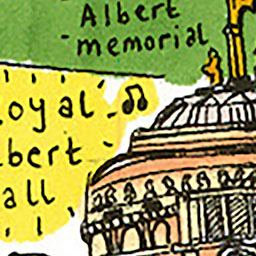 - Albert
- memorial
oyal
lbert
all